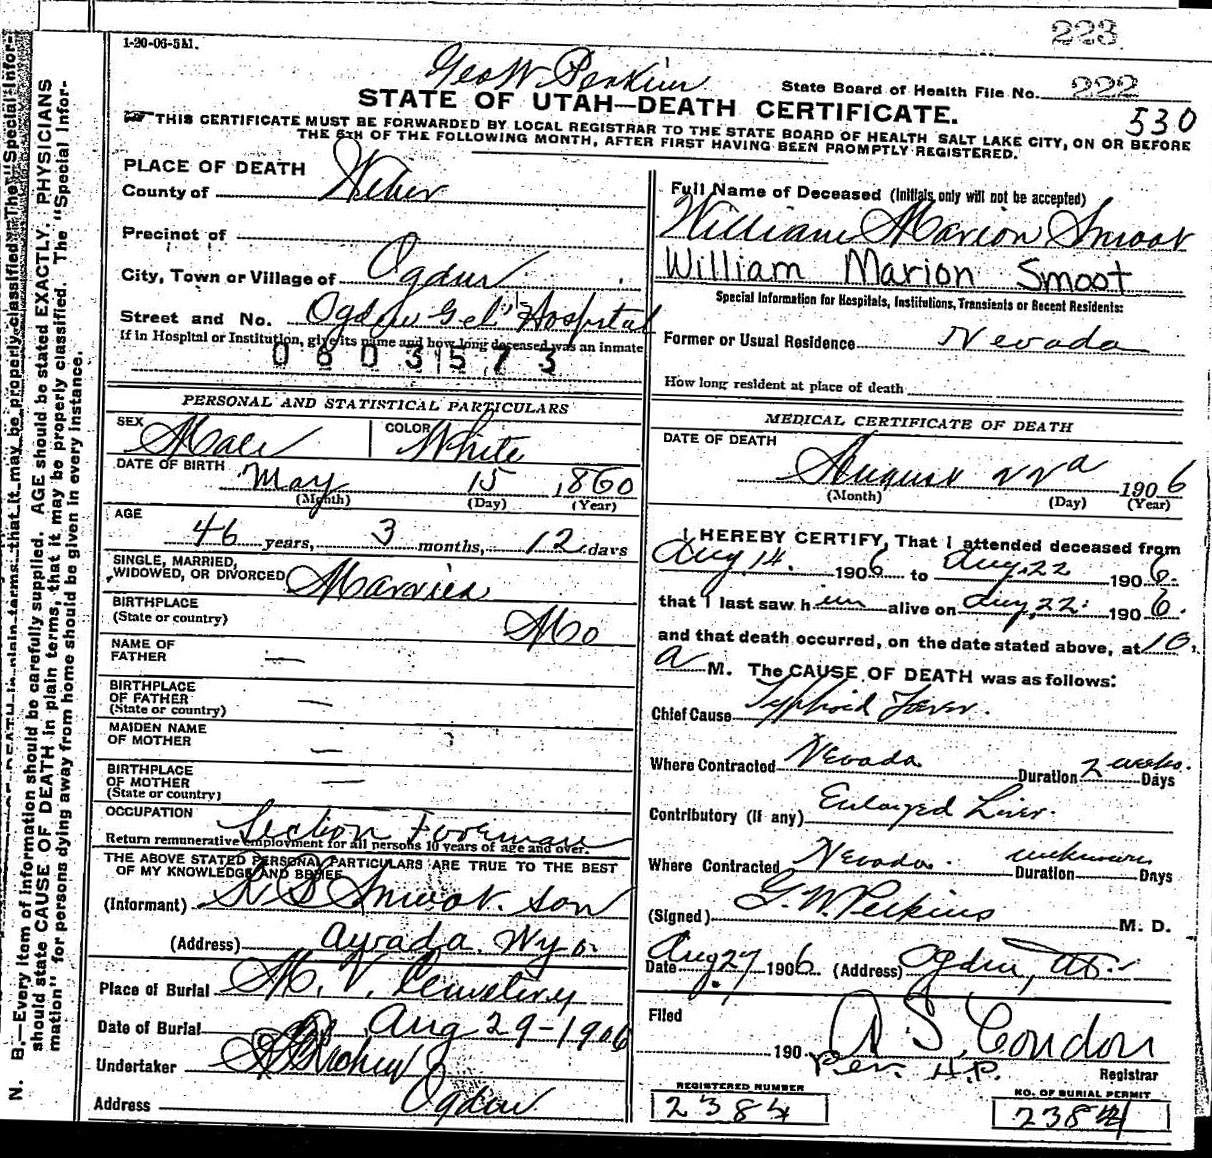 223
1-20-06-5M.
Geo W. Perkins
State Board of Health File No. 222
STATE OF UTAH—DEATH CERTIFICATE.
530
THIS CERTIFICATE MUST BE FORWARDED BY LOCAL REGISTRAR TO THE STATE BOARD OF HEALTH SALT LAKE CITY, ON OR BEFORE
THE 5TH OF THE FOLLOWING MONTH, AFTER FIRST HAVING BEEN PROMPTLY REGISTERED.
PLACE OF DEATH
County of Weber
Precinct of
City, Town or Village of Ogden
Street and No. Ogden Gel' Hospital
If in Hospital or Institution, give its name and how long deceased was an inmate
0603573
PERSONAL AND STATISTICAL PARTICULARS
SEX Male COLOR White
DATE OF BIRTH May 15 1860
(Month) (Day) (Year)
AGE 46 years, 3 months, 12 days
SINGLE, MARRIED,
WIDOWED, OR DIVORCED Married
BIRTHPLACE
(State or country) Mo
NAME OF
FATHER —
BIRTHPLACE
OF FATHER
(State or country) —
MAIDEN NAME
OF MOTHER —
BIRTHPLACE
OF MOTHER
(State or country) —
OCCUPATION Section Foreman
Return remunerative employment for all persons 10 years of age and over.
THE ABOVE STATED PERSONAL PARTICULARS ARE TRUE TO THE BEST
OF MY KNOWLEDGE AND BELIEF
(Informant) R S Smoot. son
(Address) Arvada. Wyo.
Place of Burial M. V. Cemetery
Date of Burial Aug 29-1906
Undertaker
Address Ogden
Full Name of Deceased (Initials only will not be accepted)
William Marion Smoot
William Marion Smoot
Special Information for Hospitals, Institutions, Transients or Recent Residents:
Former or Usual Residence Nevada
How long resident at place of death
MEDICAL CERTIFICATE OF DEATH
DATE OF DEATH
August 22d 1906
(Month) (Day) (Year)
I HEREBY CERTIFY, That I attended deceased from
Aug 14. 1906 to Aug. 22 1906.
that I last saw him alive on Aug, 22. 1906.
and that death occurred, on the date stated above, at 10.
a M. The CAUSE OF DEATH was as follows:
Chief Cause Typhoid Fever.
Where Contracted Nevada Duration 2 weeks. Days
Contributory (If any) Enlarged Liver.
Where Contracted Nevada. Duration unknown Days
(Signed) G. W. Perkins M. D.
Date Aug 27 1906. (Address) Ogden, Ut.
Filed
190 A S. Condon
Per. H.P. Registrar
REGISTERED NUMBER
2384
NO. OF BURIAL PERMIT
2384
N. B.—Every item of information should be carefully supplied. AGE should be stated EXACTLY. PHYSICIANS
should state CAUSE OF DEATH in plain terms, that it may be properly classified. The "Special Infor-
mation" for persons dying away from home should be given in every instance.